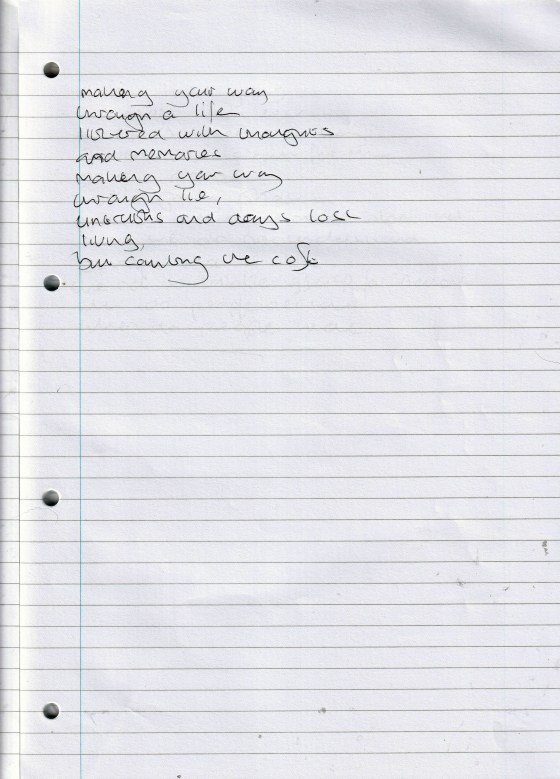 making your way
through a life
littered with thoughts
and memories
making your way
through lie,
and days lost
living,
but counting the cost